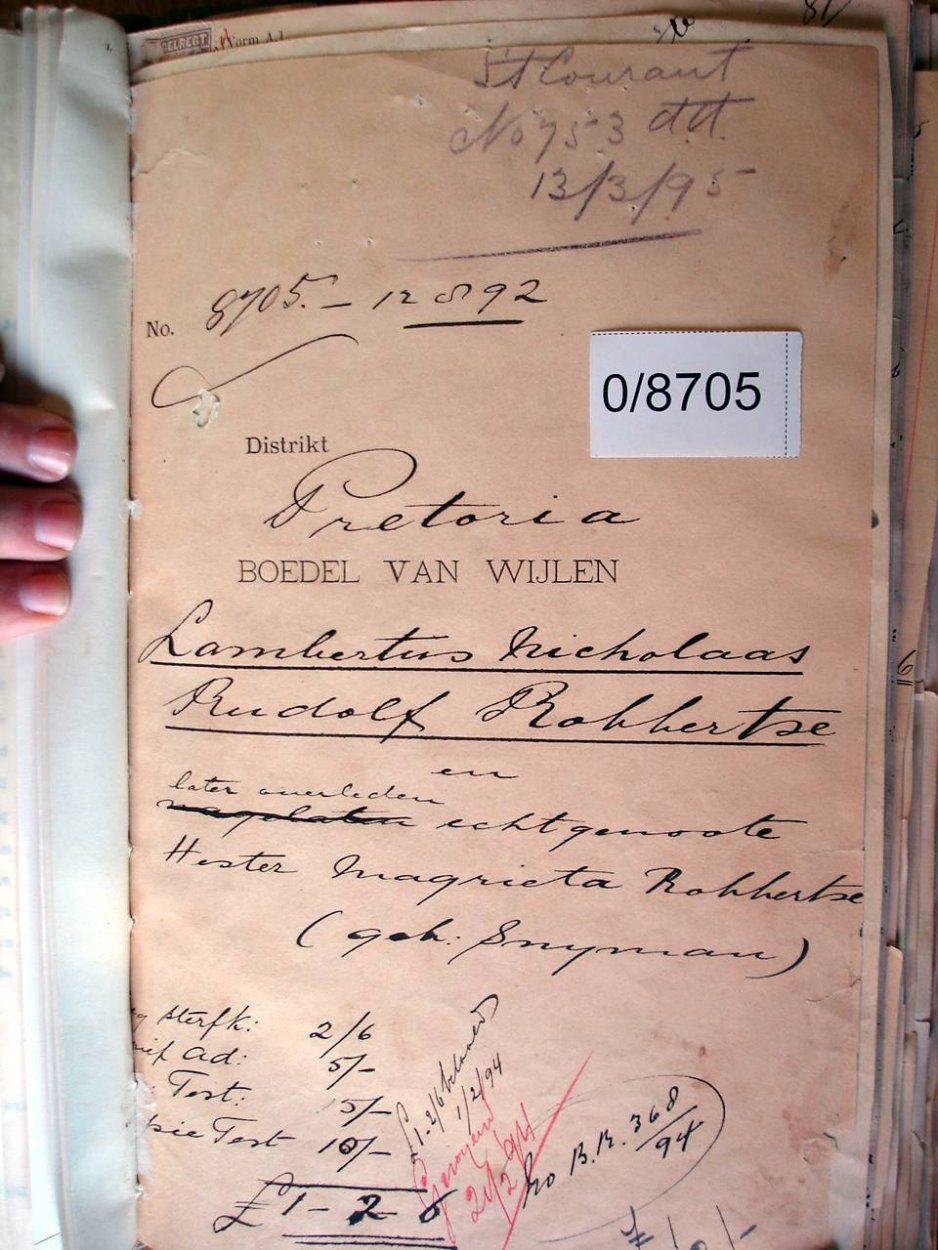 Vorm A.1
St Courant
No 753 dd.
13/3/95
No. 8705. – 12 8 92
0/8705
Distrikt
Pretoria
BOEDEL VAN WIJLEN
Lambertus Nicholaas
Rudolf Robbertse
en
later overleden
nagelaten echtgenoote
Hester Magrieta Robbertse
(geb: Snyman)
sterfk: 2/6
Ad: 5/-
Test: 5/-
Test 10/-
£1-2-6
£1-2/6 betaald
1/2/94
21/2/94
No B.R. 368/94